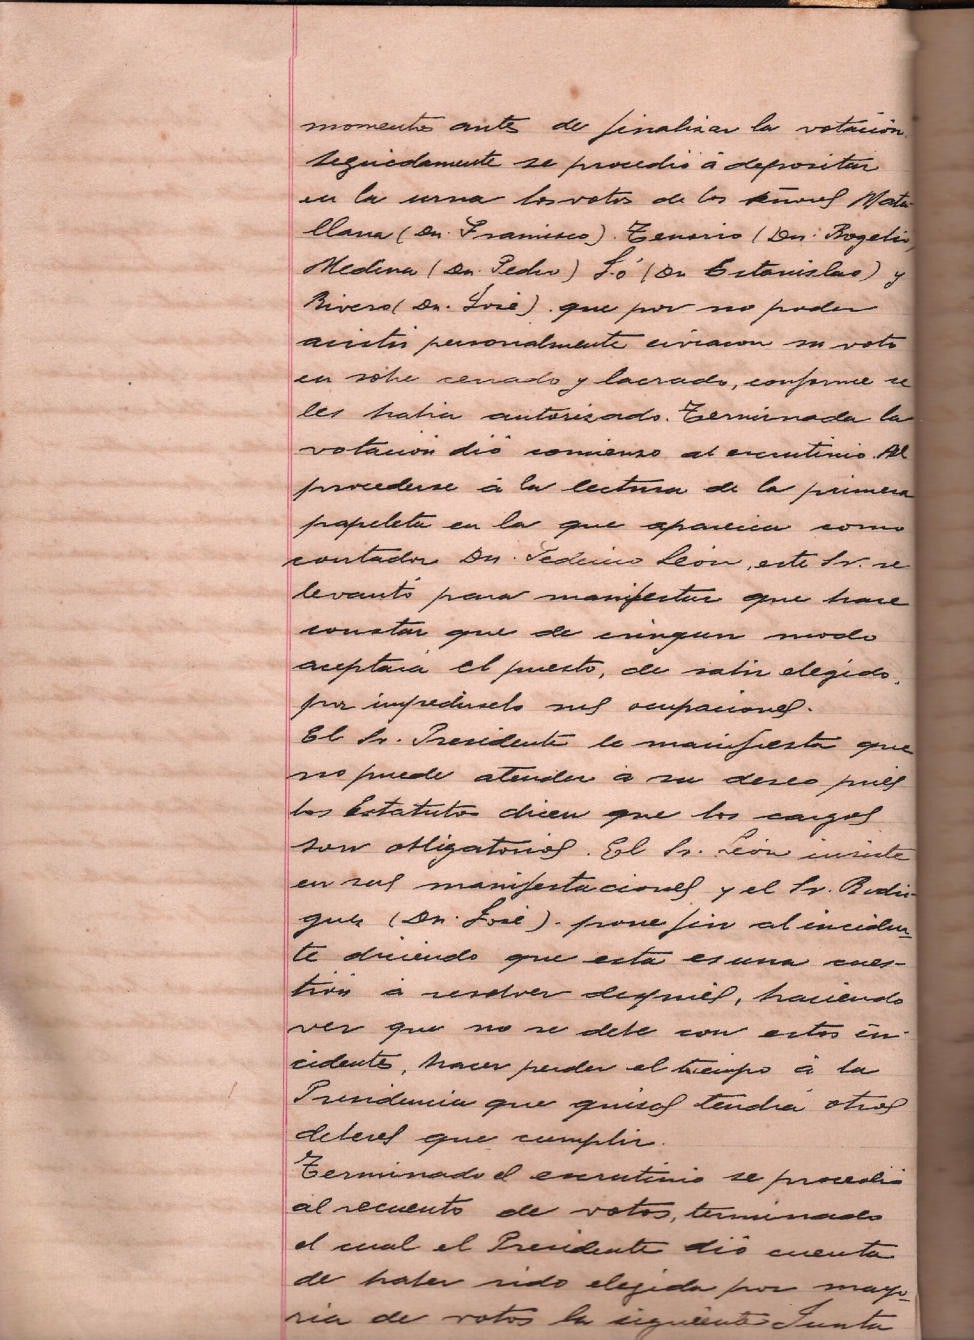 momentos antes de finalizar la votación.
Seguidamente se procedió á depositar
en la urna los votos de los señores Mata-
llana (Dn. Francisco). Tenorio (Dn. Rogelio,
Medina (Dn. Pedro) (Dn Estanislao) y
Rivero (Dn. José). que por no poder
asistir personalmente enviaron su voto
en sobre cerrado y lacrado, conforme se
les habia autorizado. Terminada la
votación dió comienzo al escrutinio. Al
procederse á la lectura de la primera
papeleta en la que aparecia como
contador Dn. Federico León, este Sr. se
levantó para manifestar que hace
constar que de ningun modo
aceptaria el puesto, de salir elegido,
por impedirselo sus ocupaciones.
El Sr. Presidente le manifiesta que
no puede atender á su deseo pues
los Estatutos dicen que los cargos
son obligatorios. El Sr. León insiste
en sus manifestaciones y el Sr. Rodri-
guez (Dn. José). pone fin al inciden-
te diciendo que esta es una cues-
tión á resolver después, haciendo
ver que no se debe con estos in-
cidentes, hacer perder el tiempo á la
Presidencia que quisas tendria otros
deberes que cumplir.
Terminado el escrutinio se procedió
al recuento de votos, terminado
el cual el Presidente dió cuenta
de haber sido elegida por mayo-
ria de votos la siguiente Junta